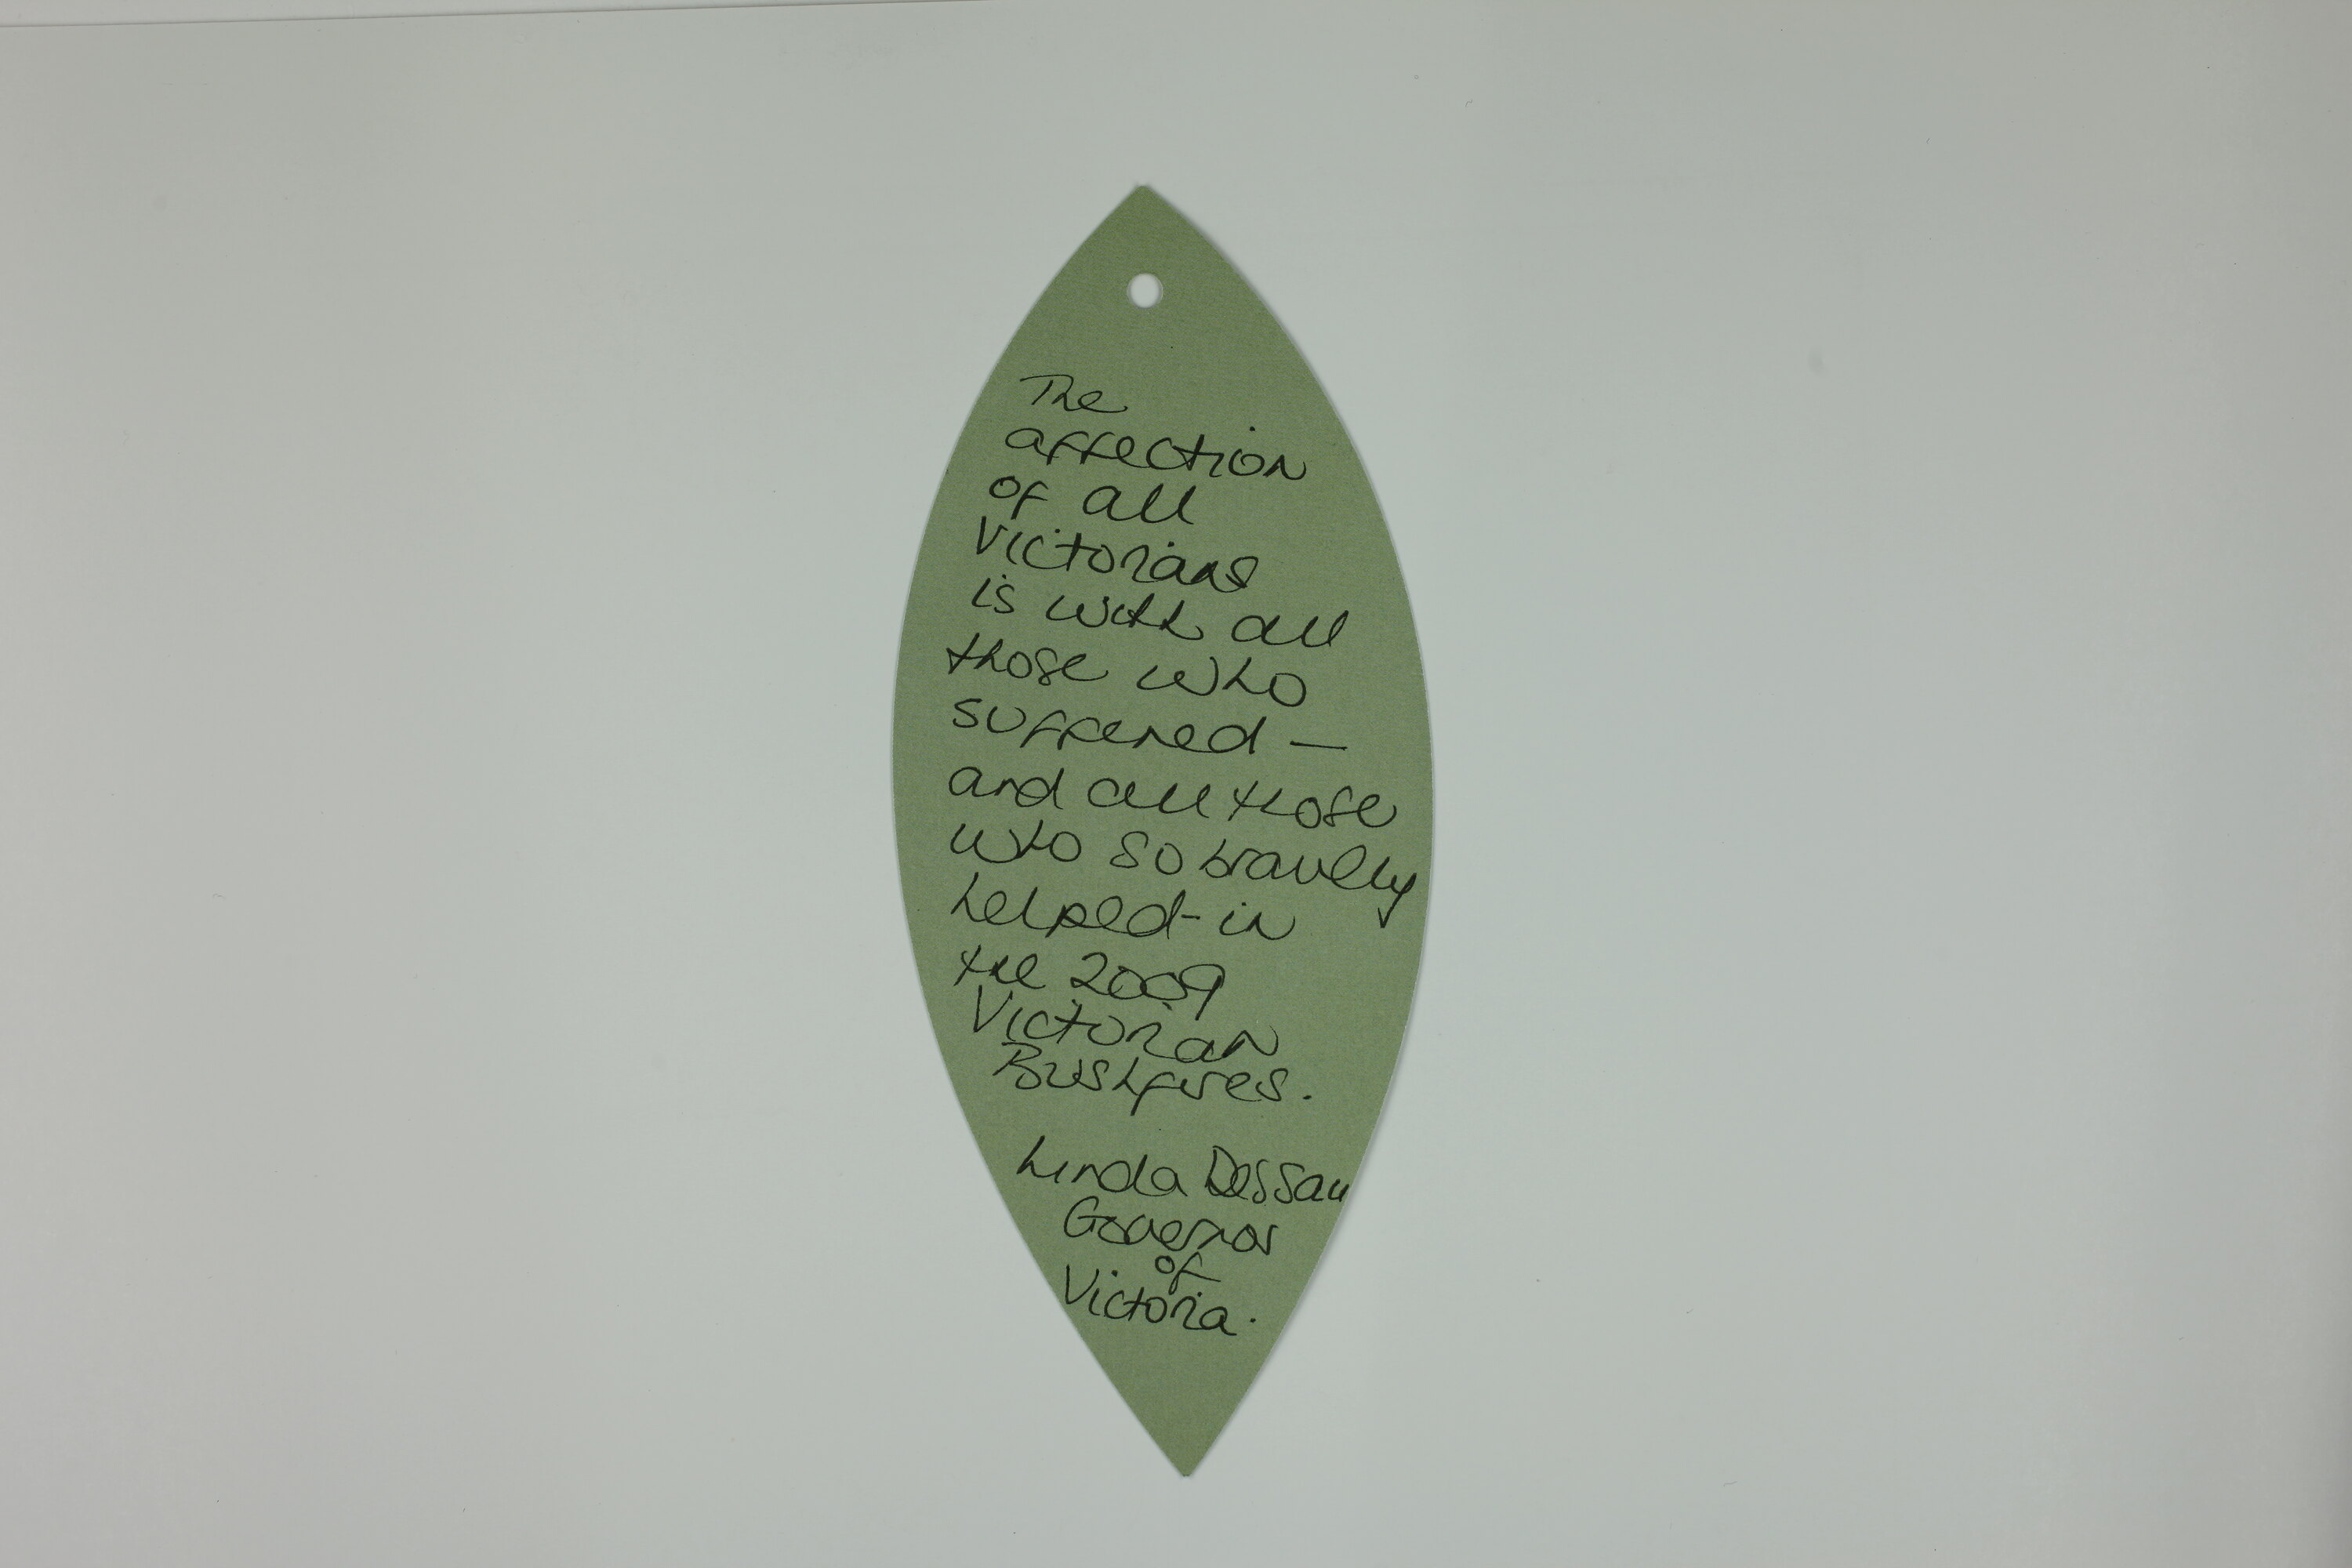 The
affection
of all
Victorians
is with all
those who
suffered —
and all those
who so bravely
helped - in
the 2009
Victorian
Bushfires.
Linda Dessau
Governor
of
Victoria.